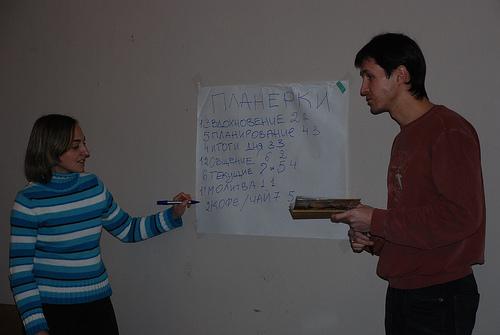 ПЛАНЕРКИ
13 ВДОХНОВЕНИЕ 2 2
5 ПЛАНИРОВАНИЕ 4 3
4 ИТОГИ ДНЯ 3 3
12 ОБЩЕНИЕ 6 2
6 ТЕКУЩИЕ ? 5 4
11 МОЛИТВА 1 1
2 КОФЕ/ЧАЙ 7 5